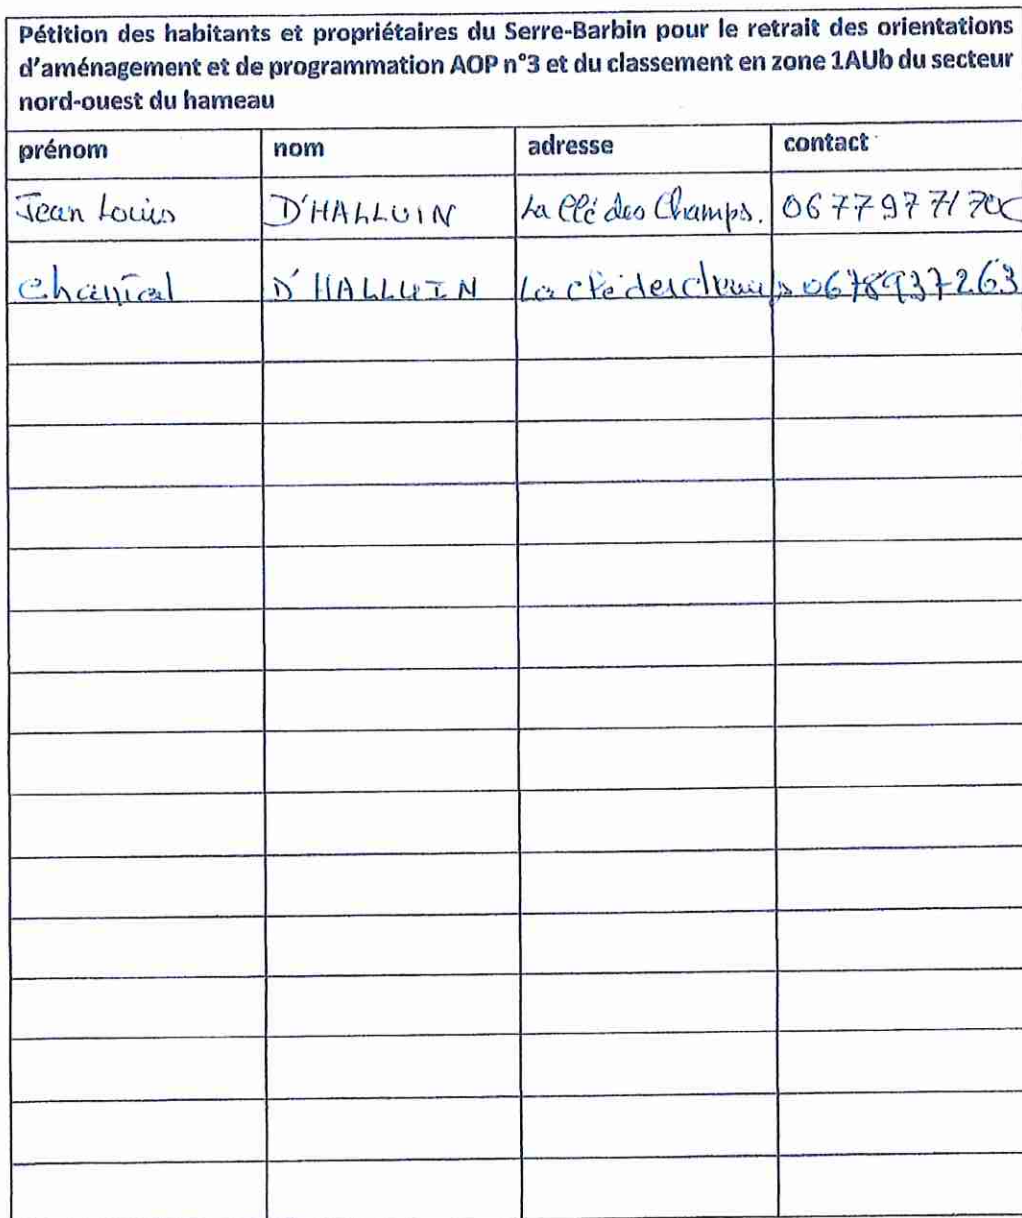 Pétition des habitants et propriétaires du Serre-Barbin pour le retrait des orientations
d'aménagement et de programmation AOP n°3 et du classement en zone 1AUb du secteur
nord-ouest du hameau
prénom nom adresse contact
Jean Louis D'HALLUIN La Clé des Champs. 0677977170
Chantal D'HALLUIN La clé des champs 0678937263